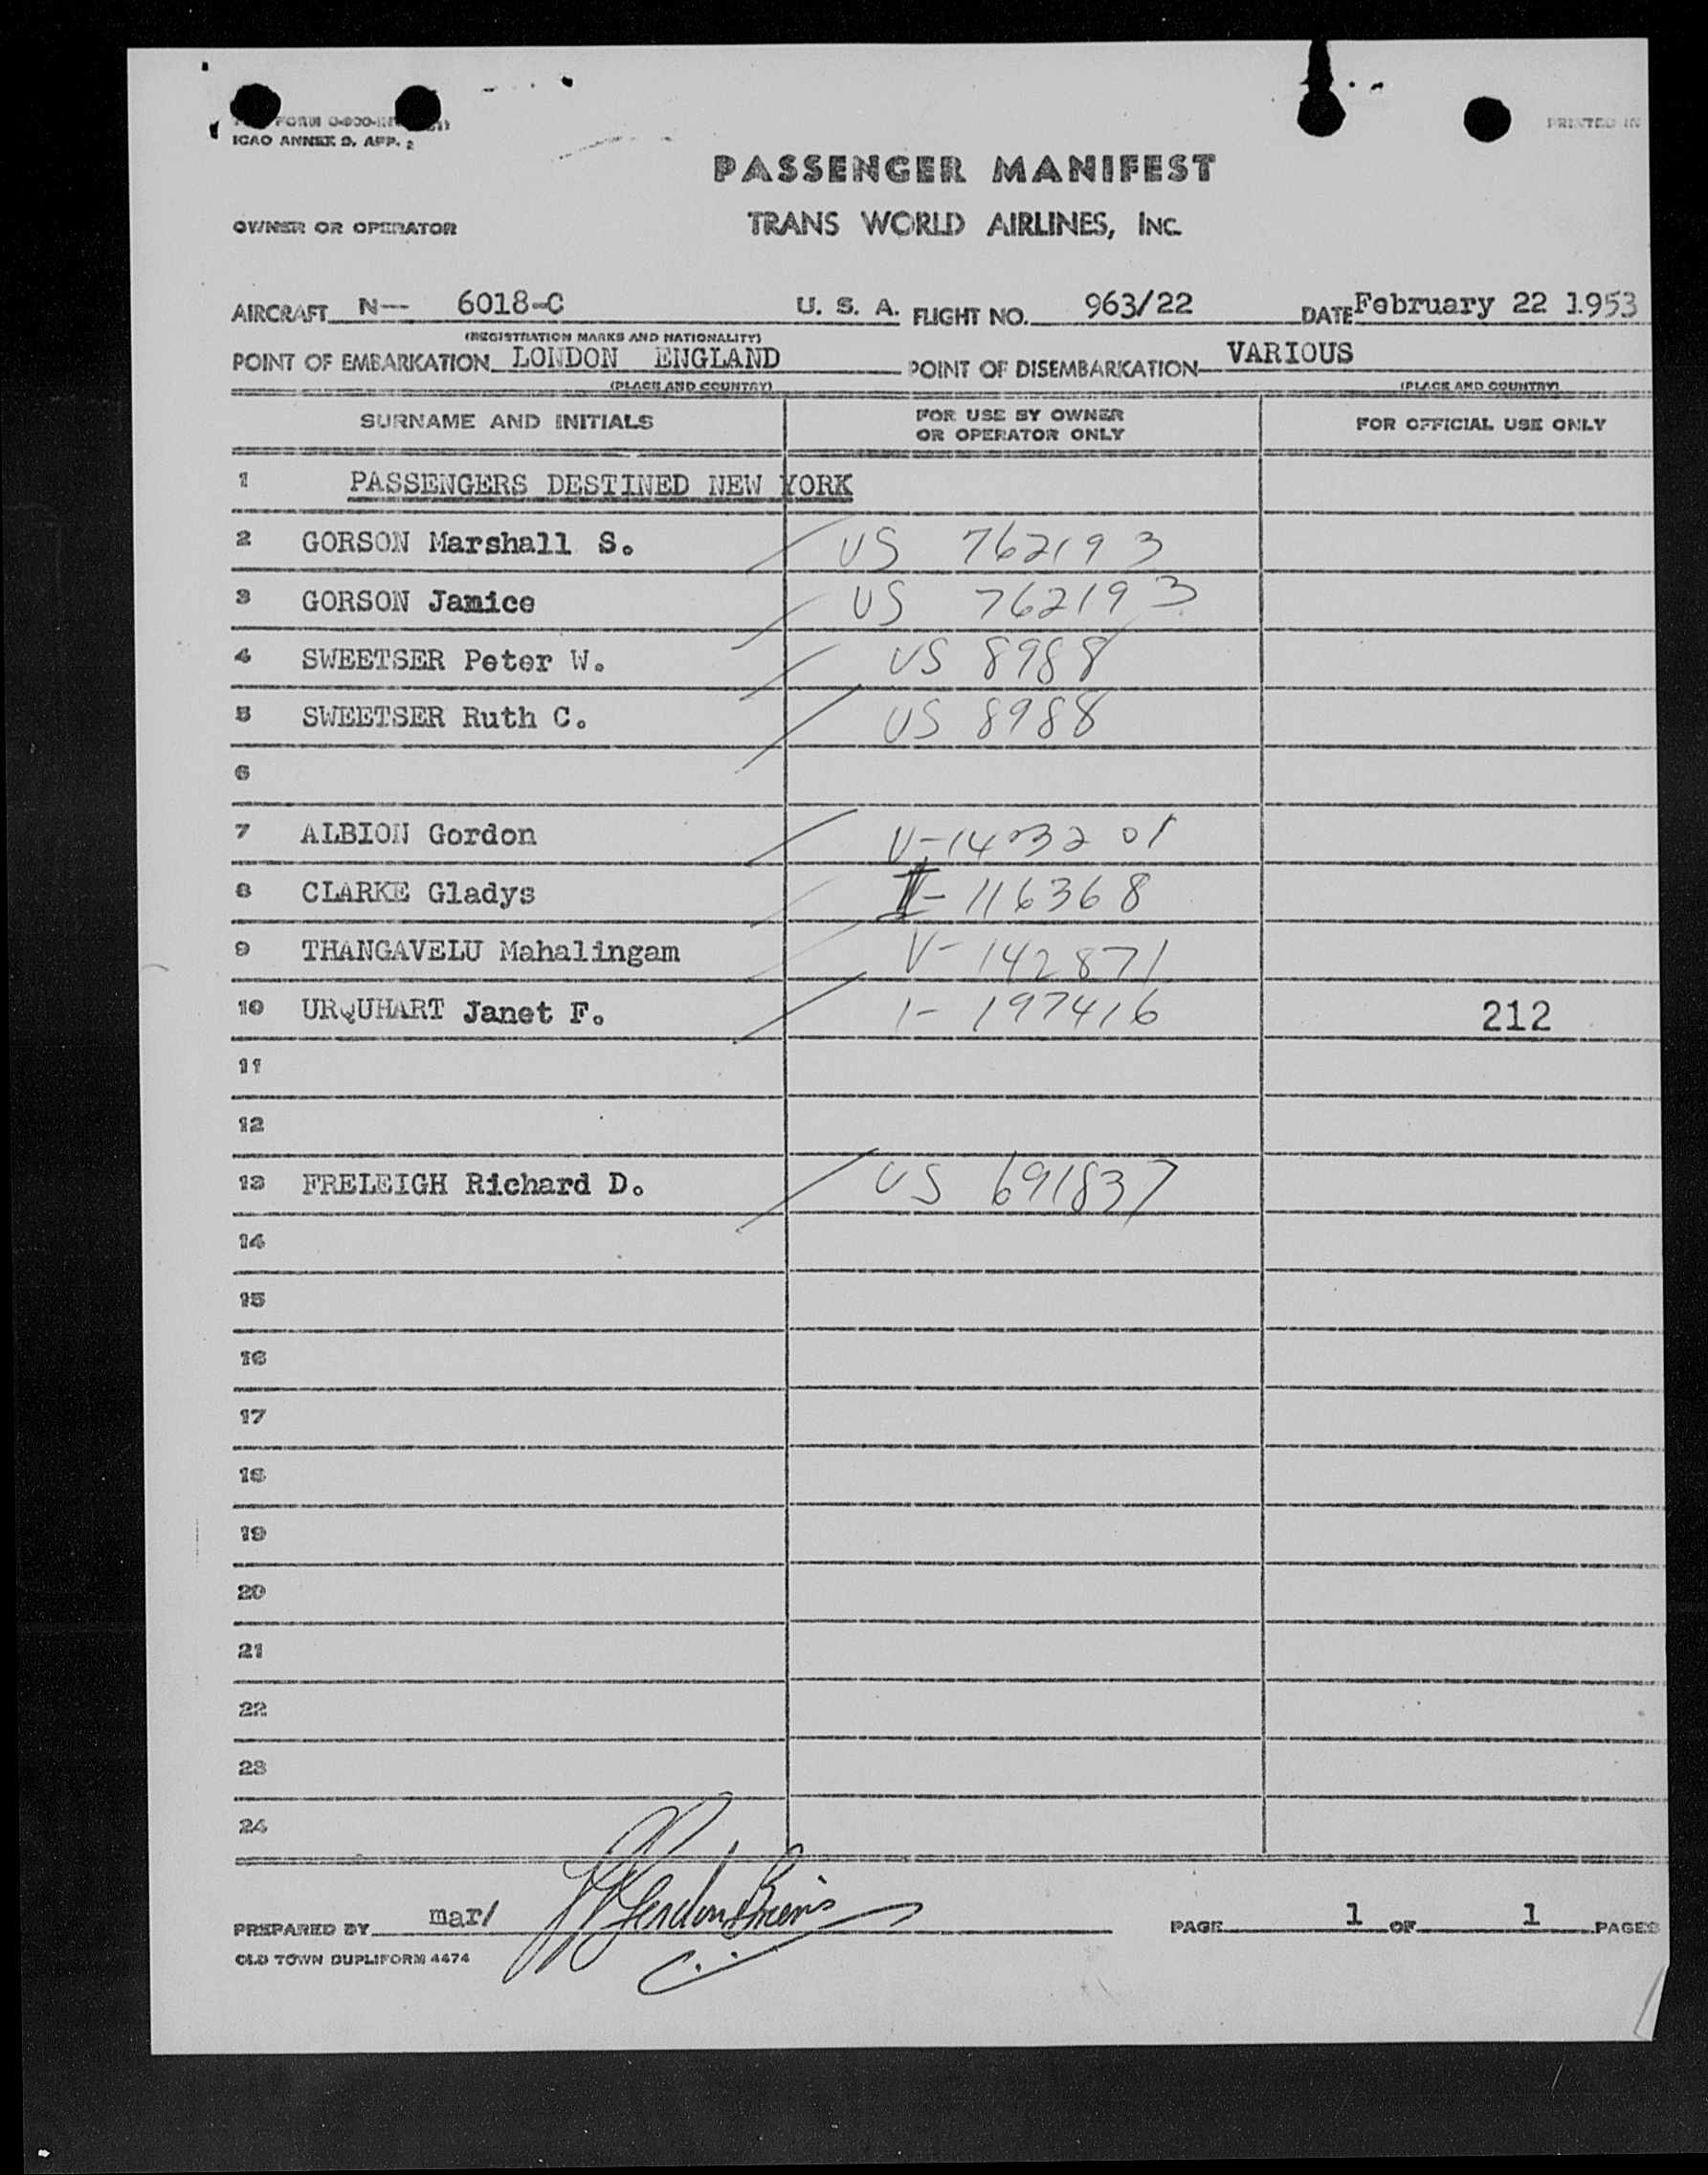 ICAO ANNEX 9, APP. 2
PRINTED IN
PASSENGER MANIFEST
OWNER OR OPERATOR TRANS WORLD AIRLINES, INC.
AIRCRAFT N-- 6018-C U. S. A. FLIGHT NO. 963/22 DATE February 22 1953
(REGISTRATION MARKS AND NATIONALITY)
POINT OF EMBARKATION LONDON ENGLAND POINT OF DISEMBARKATION VARIOUS
(PLACE AND COUNTRY) (PLACE AND COUNTRY)
SURNAME AND INITIALS FOR USE BY OWNER OR OPERATOR ONLY FOR OFFICIAL USE ONLY
1 PASSENGERS DESTINED NEW YORK
2 GORSON Marshall S. US 762193
3 GORSON Janice US 762193
4 SWEETSER Peter W. US 8988
5 SWEETSER Ruth C. US 8988
6
7 ALBION Gordon V-1403201
8 CLARKE Gladys I-116368
9 THANGAVELU Mahalingam V-142871
10 URQUHART Janet F. 1-197416 212
11
12
13 FRELEIGH Richard D. US 691837
14
15
16
17
18
19
20
21
22
23
24
PREPARED BY mar/ PAGE 1 OF 1 PAGES
OLD TOWN DUPLIFORM 4474